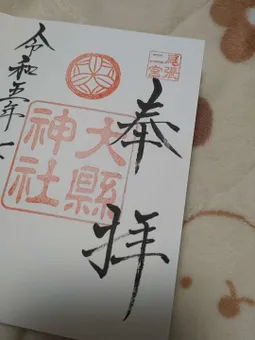 奉拝
尾張
二宮
大縣
神社
令和五年一